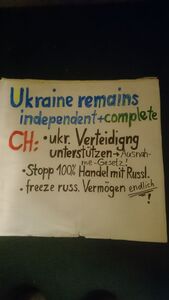 Ukraine remains
independent + complete
CH: • ukr. Verteidigng
unterstützen → Ausnah-
me-Gesetz!
• Stopp 100% Handel mit Russl.
• freeze russ. Vermögen endlich!